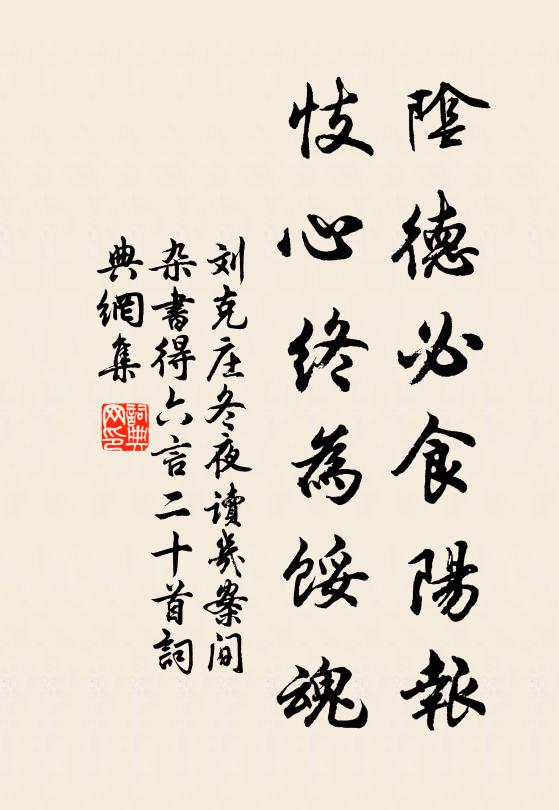 陰德必食陽報
忮心終為餒魂
刘克庄冬夜讀几案间
杂書得六言二十首詞
典網集
詞典网印